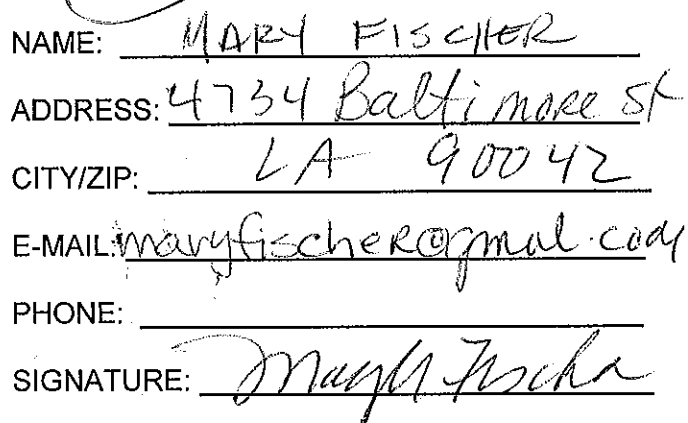 NAME: MARY FISCHER
ADDRESS: 4734 Baltimore St
CITY/ZIP: LA 90042
E-MAIL: maryfischer@gmal.com
PHONE:
SIGNATURE: Fischer